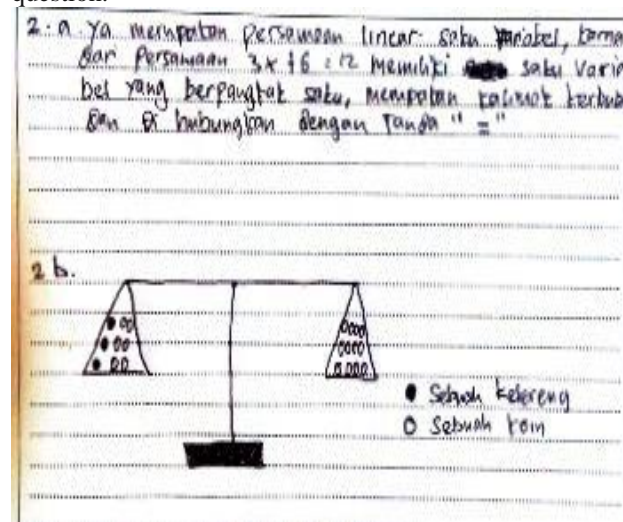 question.
2. a. Ya merupakan persamaan linear satu variabel, karna
dari Persamaan 3x + 6 = 12 Memiliki satu Varia
bel yang berpangkat satu, merupakan kalimat terbuk
dan di hubungkan dengan Tanda " = "
2 b.
Sebuah kelereng
Sebuah koin